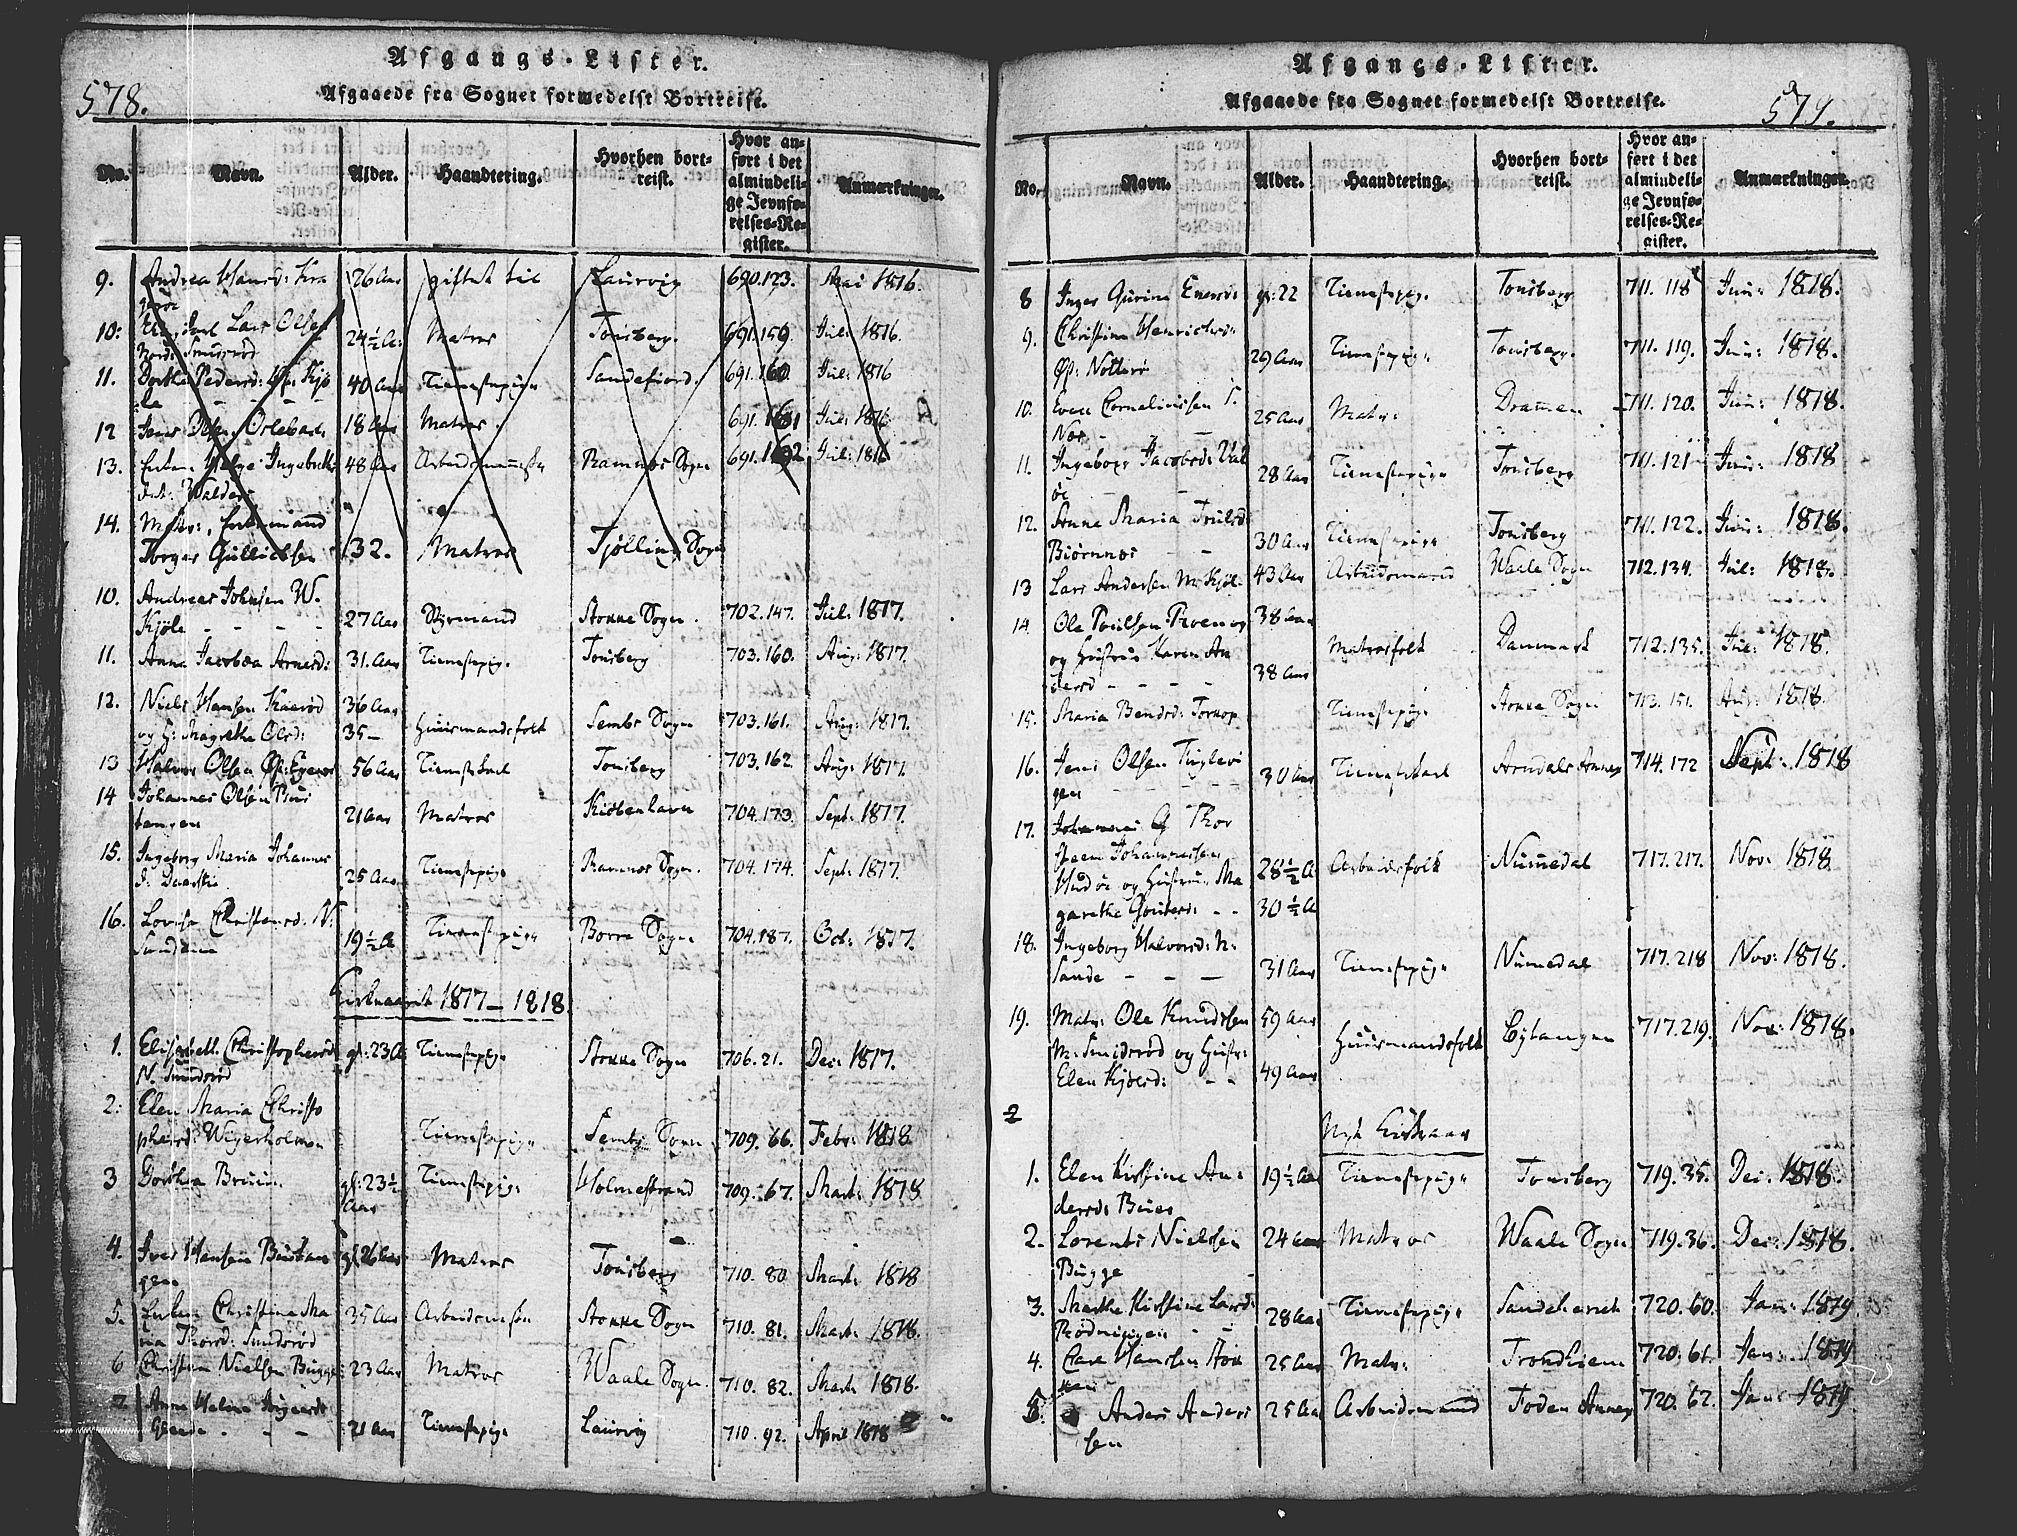 578.
Afgangs-Lister.
Afgaaede fra Sognet formedelst Bortreise.
No. Navn. Alder. Haandtering. Hvorhen bortreist. Hvor anført i det almindelige Jevnførelses-Register. Anmærkninger.
9. Andrea Hansd: 26 Aar giftet til Laurvig 690.123. Mai 1816.
10: Lars Olsen 24½ A: Matros Tonsberg. 691.159. Jul: 1816.
11. Dorthe Pedersd: 40 Aar Tienestepige Sandefiord. 691.160. Jul: 1816
12 Jens Olsen Orlebak 18 Aar Matros 691.161 Jul: 1816.
13. Enken Helge Ingebretts 48 Aar Ramnæs Sogn 691.162. Jul: 1816
dat:
14. Matr:, Enkemand
Torger Gullichsen 32. Matros Tjølling Sogn
10. Andreas Johnsen W.
Kjøle - - - 27 Aar Styrmand Stokke Sogn. 702.147. Jul: 1817.
11. Anne Jacobea Arnesd: 31. Aar Tienestepig. Tonsberg 703.160. Aug: 1817.
12. Niels Hansen Kaerød 36 Aar
og H: Magrethe Olsd: 35- Huusmandsfolk Sembs Sogn 703.161. Aug: 1817.
13 Halvor Olsen Øs: 56 Aar Tienestekarl Tonsberg 703.162. Aug: 1817.
14 Johannes Olsen Buus
tangen 21 Aar Matros Kiøbenhavn 704.173. Sept: 1817.
15. Ingeborg Maria Johannes
d: 25 Aar Tienestepige Ramnæs Sogn. 704.174. Sept: 1817.
16. Lovise Christensd: N.
19½ A Tienestepige Borre Sogn 704.187. Oct: 1817.
Kirkeaaret 1817 - 1818
1. Elisabeth Christophersd gl: 23 A Tienestepige Stokke Sogn 706.21. Dec: 1817.
N. Smidsrød
2: Elen Maria Christo
phersd: Wigerholmen Tienestepige Sembs Sogn 709.66. Febr: 1818
3 Dorthea Bruun. gl: 23½ Aar Tienestepige Holmestrand 709.67. Mart: 1818
4. Iver Hansen Buustan
gen gl 26 Aar Matros Tonsberg 710.80 Mart: 1818
5. Enken Christine Ma
ria Thorsd: Smidsrød 35 Aar Stokke Sogn 710.81. Mart: 1818.
6 Christen Nielsen Bugge 23 Aar Matros Waale Sogn. 710.82. Mart: 1818.
7. Anne Helene
- - 21 Aar Tienestepige Laurvig 710.92. April 1818
579.
Afgangs-Lister.
Afgaaede fra Sognet formedelst Bortreise.
No. Navn. Alder. Haandtering. Hvorhen bortreist. Hvor anført i det almindelige Jevnførelses-Register. Anmærkninger.
8 Inger Gurine Enersd: gl: 22 Tienestepig. Tonsberg 711.118 Jun: 1818.
9. Christine Henrichsd:
Øs: Nötterö 29 Aar Tienestepige Tonsberg. 711.119. Jun: 1818.
10. Even Corneliussen V.
Næs - - 25 Aar Matr: Dramen 711.120. Jun: 1818.
11. Ingeborg Jacobsd: Val
öe - - 28 Aar Tienestepige Tonsberg 711.121 Jun: 1818
12. Anne Maria Truelsd
Biørnnæs - - 30 Aar Tienestepige Tonsberg 711.122. Jun: 1818.
13 Lars Andersen M. Kjøl. 43 Aar Arbeidsmand Waale Sogn 712.134. Jul: 1818.
14. Ole Poulsen 38 Aar
og Hustrue Karen An
dersd - - - 38 Aar Matrosfolk Danmark 712.135. Jul: 1818.
15. Maria Bendsd: Torkop Tienestepige Stokke Sogn 713.151. Aug: 1818.
16. Jens Olsen Tinglevi
gen - - - 30 Aar Tienestekarl Arndals Annex 714.172 Sept: 1818
17. Thor
steen Johannessen
Hudöe og Hustrue Ma 28½ A Arbeidsfolk Numedal 717.217. Nov: 1818
garethe Gulbrsd: - - 30½ A
18. Ingeborg Halvorsd: N:
Sande - - - 31 Aar Tienestepige Numedal 717.218 Nov: 1818.
19. Matr: Ole Knudsen 59 Aar
M: Smidsrød og Hustr: Huusmandsfolk Eftangen 717.219. Nov: 1818.
Elen Kjølsd: - - 49 Aar
2
Nyt Kirkeaar
1. Elen Kirstine An-
dersd: Buer 19½ Aar Tienestepige Tonsberg 719.35. Dec: 1818.
2. Lorents Nielsen
Bugge 24 Aar Matros Waale Sogn 719.36. Dec: 1818.
3. Marthe Kirstine Larsd:
Rødningen - - 28 Aar Tienestepige Sandeherret 720.60. Jan: 1819
4. Carl Hansen Stok
ken 25 Aar Matr: Trondhiem 720.61. Jan: 1819
5. Anders Anders
sen 25 Aar Arbeidsmand Foden Annex 720.62. Jan: 1819.